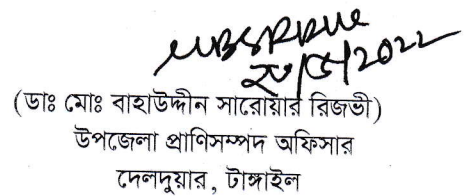 (ডাঃ মোঃ বাহাউদ্দীন সারোয়ার রিজভী)
উপজেলা প্রাণিসম্পদ অফিসার
দেলদুয়ার, টাঙ্গাইল